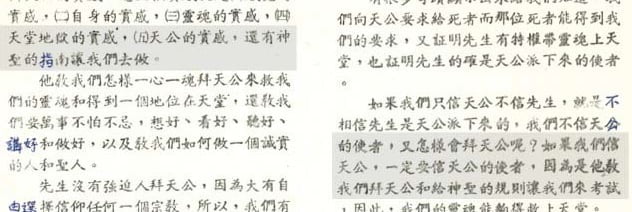 實感，㈡自身的實感，㈢靈魂的實感，㈣
天堂地獄的實感，㈤天公的實感，還有神
聖的指南讓我們去做。
他敎我們怎樣一心一魂拜天公來救我
們的靈魂和得到一個地位在天堂，還敎我
們要萬事不怕不忌，想好、看好、聽好、
講好和做好，以及敎我們如何做一個誠實
的人和聖人。
先生沒有强迫人拜天公，因為大有自
由選擇信仰任何一個宗敎，所以，我們有
們向天公要求給死者而那位死者能得到我
們的要求，又証明先生有特權帶靈魂上天
堂，也証明先生的確是天公派下來的使者
。
如果我們只信天公不信先生，就是不
相信先生是天公派下來的，我們不信天公
的使者，又怎樣會拜天公呢？如果我們信
天公，一定要信天公的使者，因為是他敎
我們拜天公和給神聖的規則讓我們來考試
，因此，我們的靈魂能夠得救上天堂。